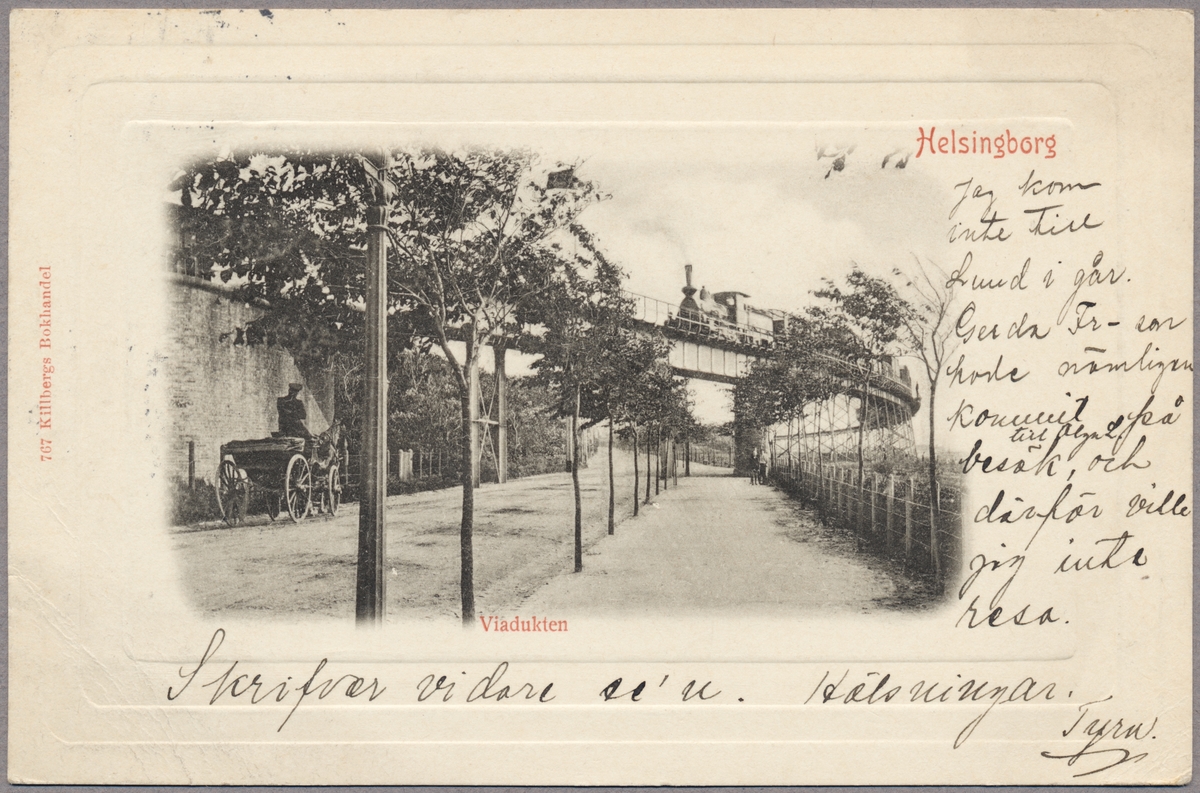 Helsingborg
Jag kom
inte till
Lund i går.
Gerda Fr-son
hade nämligen
kommit på
besök, och
därför ville
jag inte
resa.
Viadukten
Skrifver vidare se'n. Hälsningar.
Tyra.
767 Killbergs Bokhandel